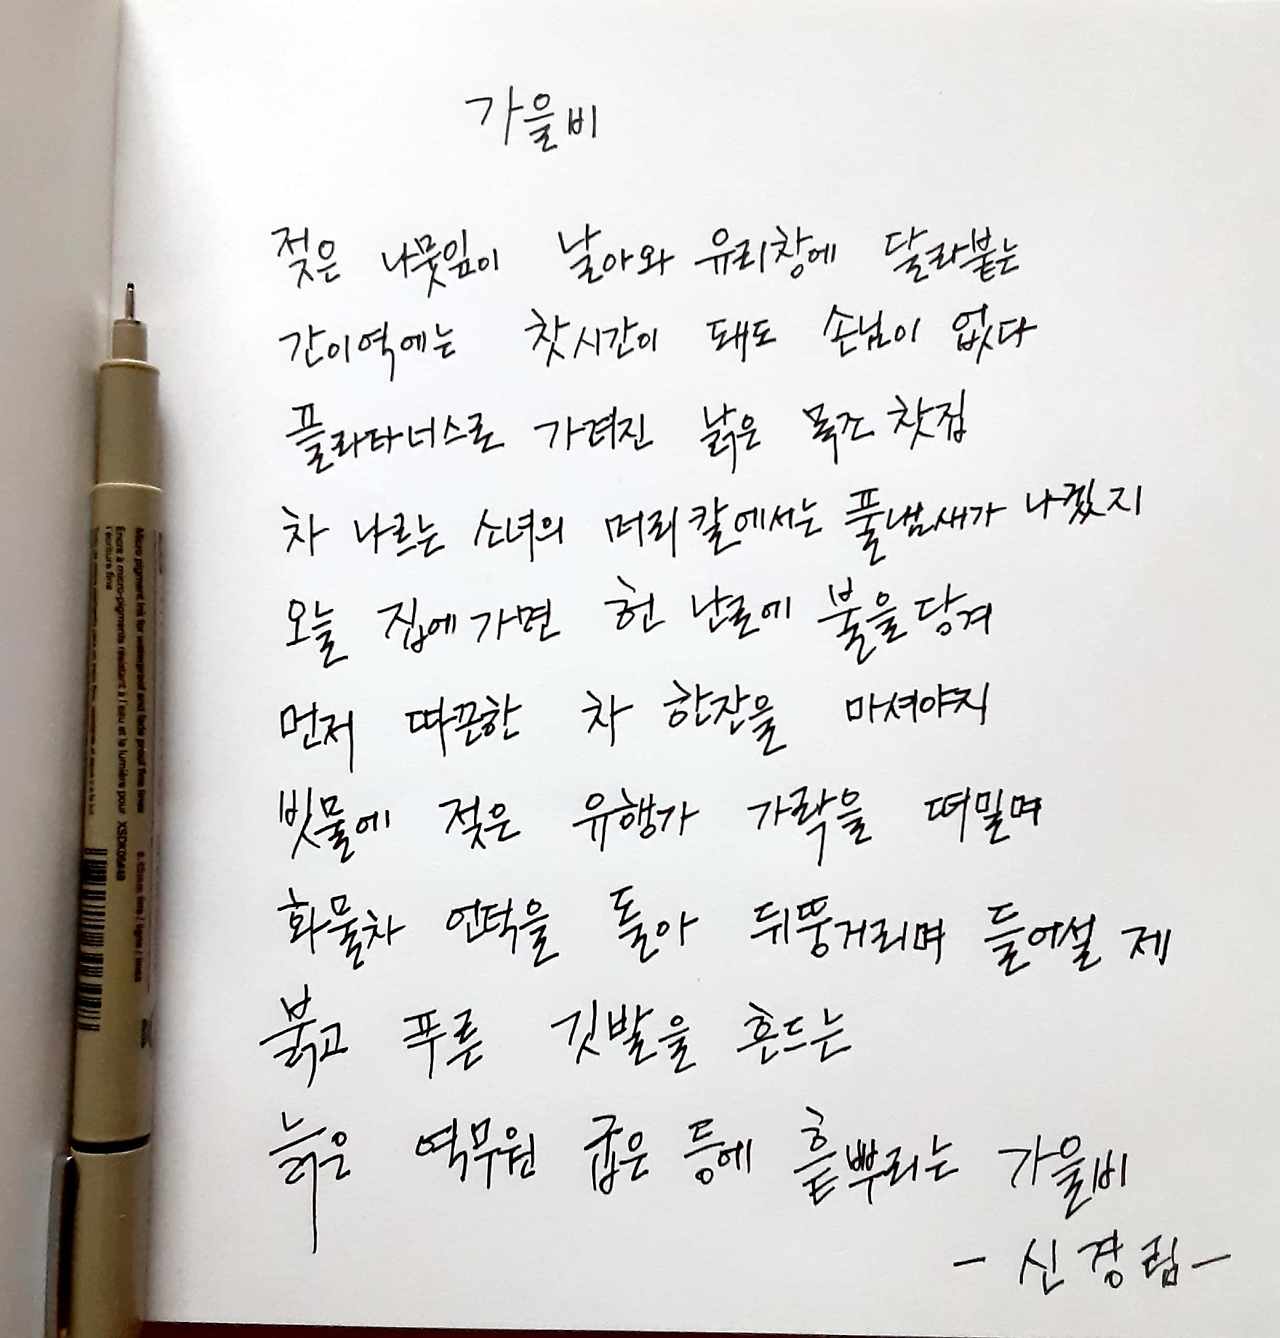 가을비
젖은 나뭇잎이 날아와 유리창에 달라붙는
간이역에는 찻시간이 돼도 손님이 없다
플라타너스로 가려진 낡은 목조 찻집
차 나르는 소녀의 머리칼에서는 풀냄새가 나겠지
오늘 집에 가면 헌 난로에 불을 당겨
먼저 따끈한 차 한잔을 마셔야지
빗물에 젖은 유행가 가락을 떠밀며
화물차 언덕을 돌아 뒤뚱거리며 들어설 제
붉고 푸른 깃발을 흔드는
늙은 역무원 굽은 등에 흩뿌리는 가을비
- 신경림 -
Micro pigment ink for waterproof and fade proof fine lines
Encre à micro-pigments résistant à l'eau et la lumière pour
l'écriture fine
XSDK005#49